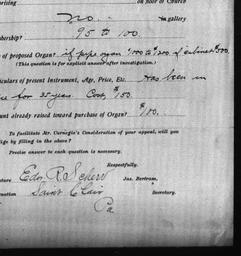 rising on floor of Church
No. in gallery
bership? 95 to 100
of proposed Organ? if pipe organ 1000 to 1200 if cabinet $500,
(This question is for explicit answer after investigation.)
iculars of present Instrument, Age, Price, Etc. Has been in
use for 35 years. Cost, $150.
unt already raised toward purchase of Organ? $100.
To facilitate Mr. Carnegie's Consideration of your appeal, will you
ige by filling in the above?
Precise answer to each question is necessary.
Respectfully,
ature Edw. R. Scherr Jas. Bertram,
nation Saint Clair Secretary.
Pa